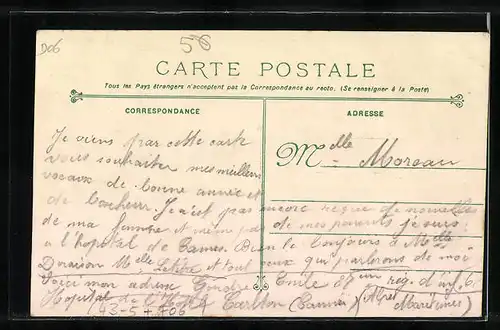 906
56
CARTE POSTALE
Tous les Pays étrangers n'acceptent pas la Correspondance au recto. (Se renseigner à la Poste)
CORRESPONDANCE
ADRESSE
Je viens par cette carte
vous souhaiter mes meilleurs
voeaux de bonne année et
de bonheur. Je n'est pas encore reçue de nouvelles
de ma femme et même pas de mes parents je suis
a l'hopital de Cannes. Bien le bonjours à Melle
Donaison Melle et tout ceux qui parlerons de moi
Voici mon adresse Emile 8 em reg. d'inf.
Hopital de l'Hotel Carlton (Cannes) (Alpes Maritimes)
Melle Moreau